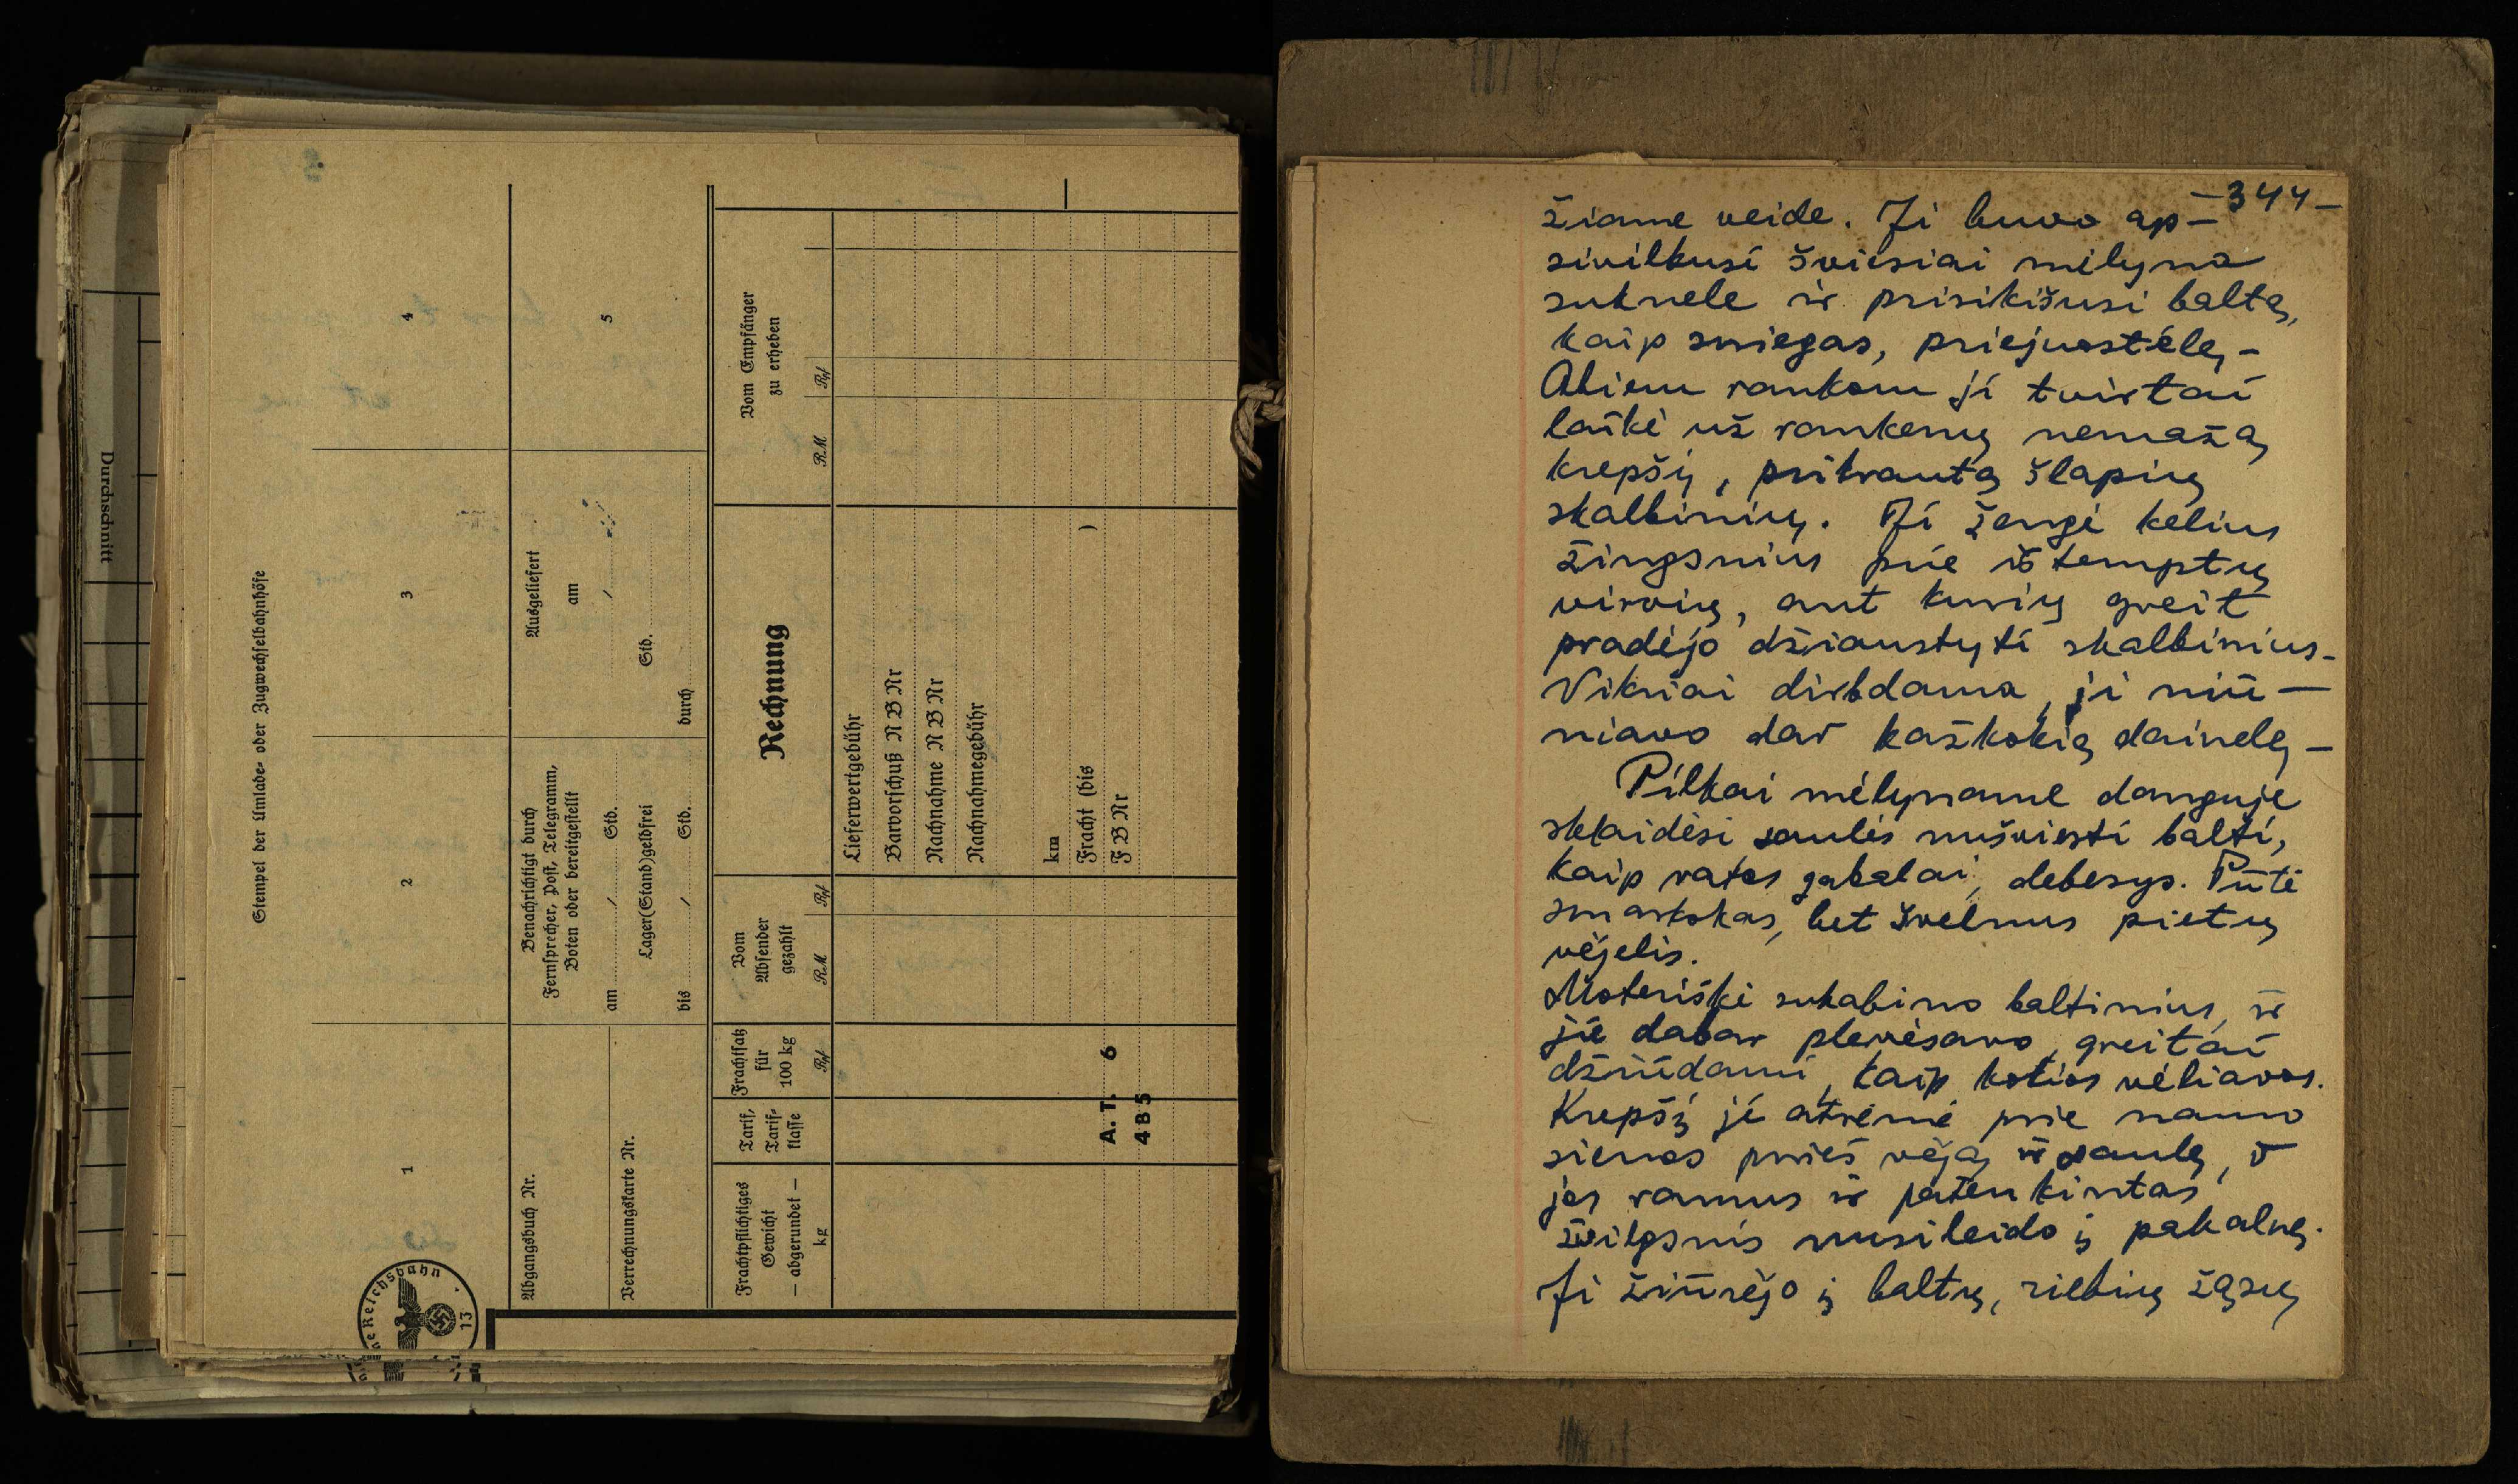 Durchschnitt
Stempel der Umlade- oder Zugwechselbahnhöfe
1
2
3
4
Abgangsbuch Nr.
Verrechnungskarte Nr.
Benachrichtigt durch
Fernsprecher, Post, Telegramm,
Boten oder bereitgestellt
am / Std.
Lager(Stand)geldfrei
bis / Std.
Ausgeliefert
am
/
Std.
durch
5
Frachtpflichtiges
Gewicht
— abgerundet —
kg
Tarif,
Tarif-
klasse
Frachtsatz
für
100 kg
Rpf
Vom
Absender
gezahlt
RM Rpf
Rechnung
Vom Empfänger
zu erheben
RM Rpf
Lieferwertgebühr
Barvorschuß N B Nr
Nachnahme N B Nr
Nachnahmegebühr
km
Fracht (bis )
F B Nr
A. T. 6
4 B 5
ne Reichsbahn
13
-344-
žiame veide. Ji buvo ap-
sivilkusi šviesiai mėlyna
suknele ir prisikišusi baltą,
kaip sniegas, priejuostėlę-
Abiem rankom ji tvirtai
laikė už rankenų nemažą
krepšį, prikrautą šlapių
skalbinių. Ji žengė kelius
žingsnius prie ištemptų
virvių, ant kurių greit
pradėjo džiaustyti skalbinius-
Vikriai dirbdama, ji niū-
niavo dar kažkokią dainelę-
Pilkai mėlyname danguje
sklaidėsi saulės nušviesti balti,
kaip vatos gabalai, debesys. Pūtė
smarkokas, bet švelnus pietų
vėjelis.
Moteriškė sukabino baltinius, ir
jie dabar plevėsavo, greitai
džiūdami, kaip kokios vėliavos.
Krepšį ji atrėmė prie namo
sienos prieš vėją ir saulę, o
jos ramus ir patenkintas
žvilgsnis nusileido į pakalnę.
Ji žiūrėjo į baltų, riebių žąsų